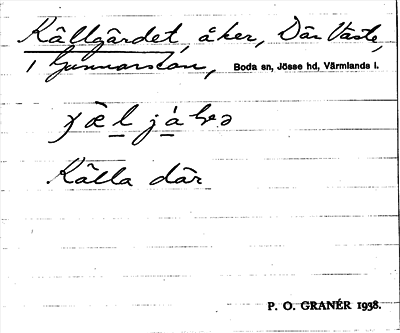 Källgärdet, åker, Där Väste,
i Gunnarston, Boda sn, Jösse hd, Värmlands l.
Källa där
P. O. GRANÉR 1938.